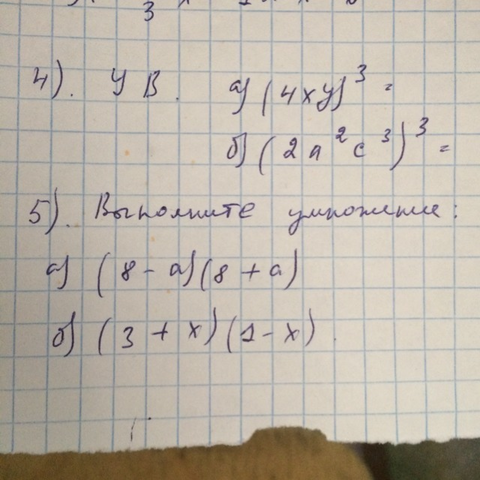 3
4). УВ. а) (4xy)³ =
б) (2a²c³)³ =
5). Выполните умножение:
а) (8 - a)(8 + a)
б) (3 + x)(1 - x).